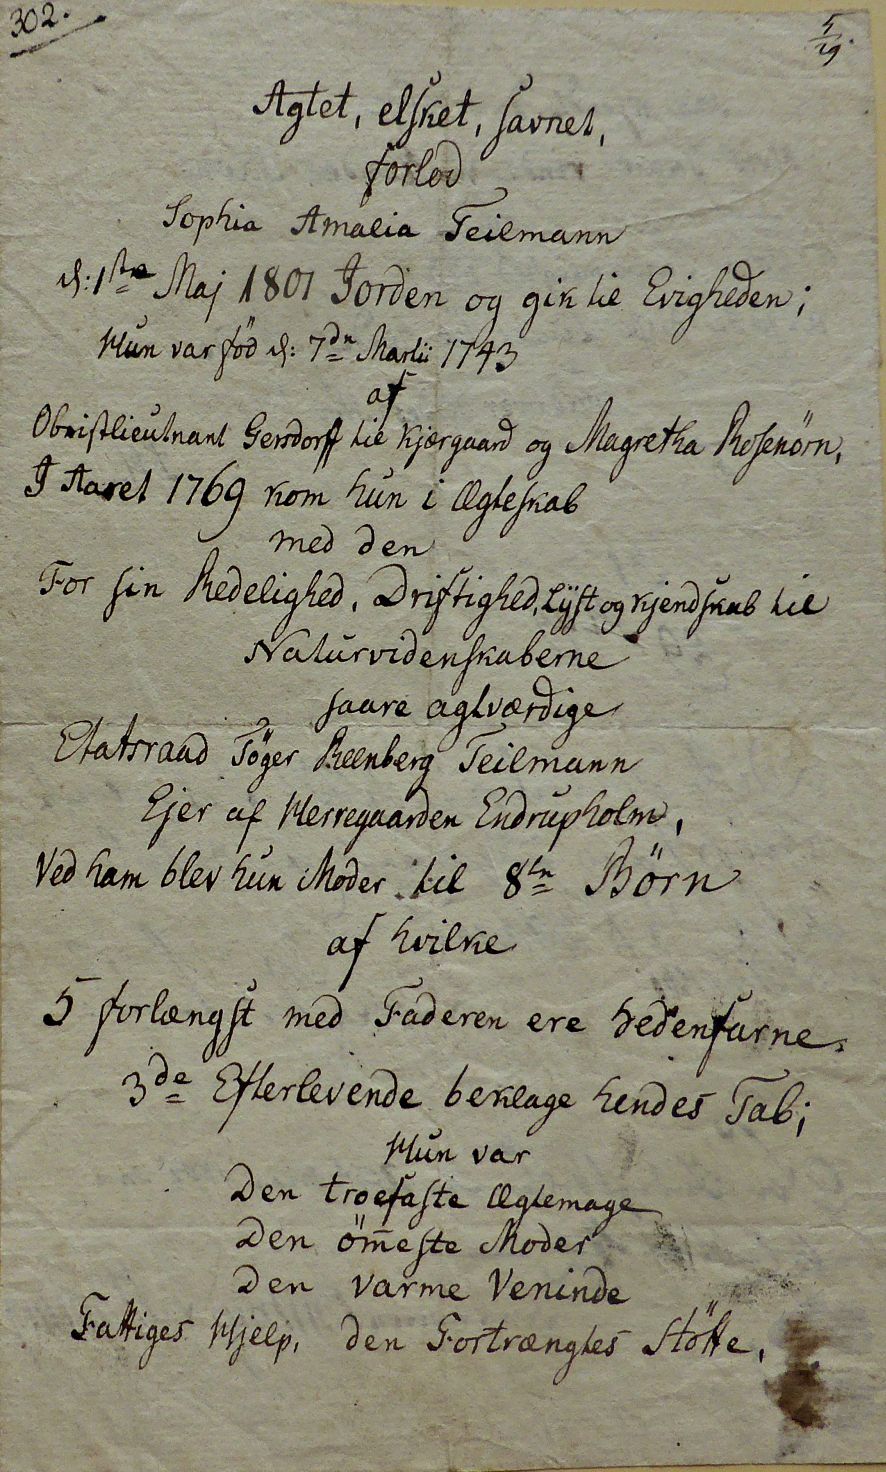 302.
5/19.
Agtet, elsket, savnet,
forlod
Sophia Amalia Teilmann
d: 1ste Maj 1801 Jorden og gik til Evigheden;
Hun var föd d: 7dn Martii 1743
af
Obristlieutnant Gersdorff til Kjærgaard og Magretha Rosenörn,
I Aaret 1769 kom hun i Ægteskab
med den
For sin Redelighed, Driftighed, Lÿst og Kjendskab til
Naturvidenskaberne
saare agtværdige
Etatsraad Töger Reenberg Teilmann
Ejer af Herregaarden Endrupholm,
Ved ham blev hun Moder til 8tn Börn
af hvilke
5 forlængst med Faderen ere hedenfarne.
3de Efterlevende beklage hendes Tab;
Hun var
Den troefaste Ægtemage
Den öm̅este Moder
Den varme Veninde
Fattiges Hjelp, den Fortrængtes Stötte,